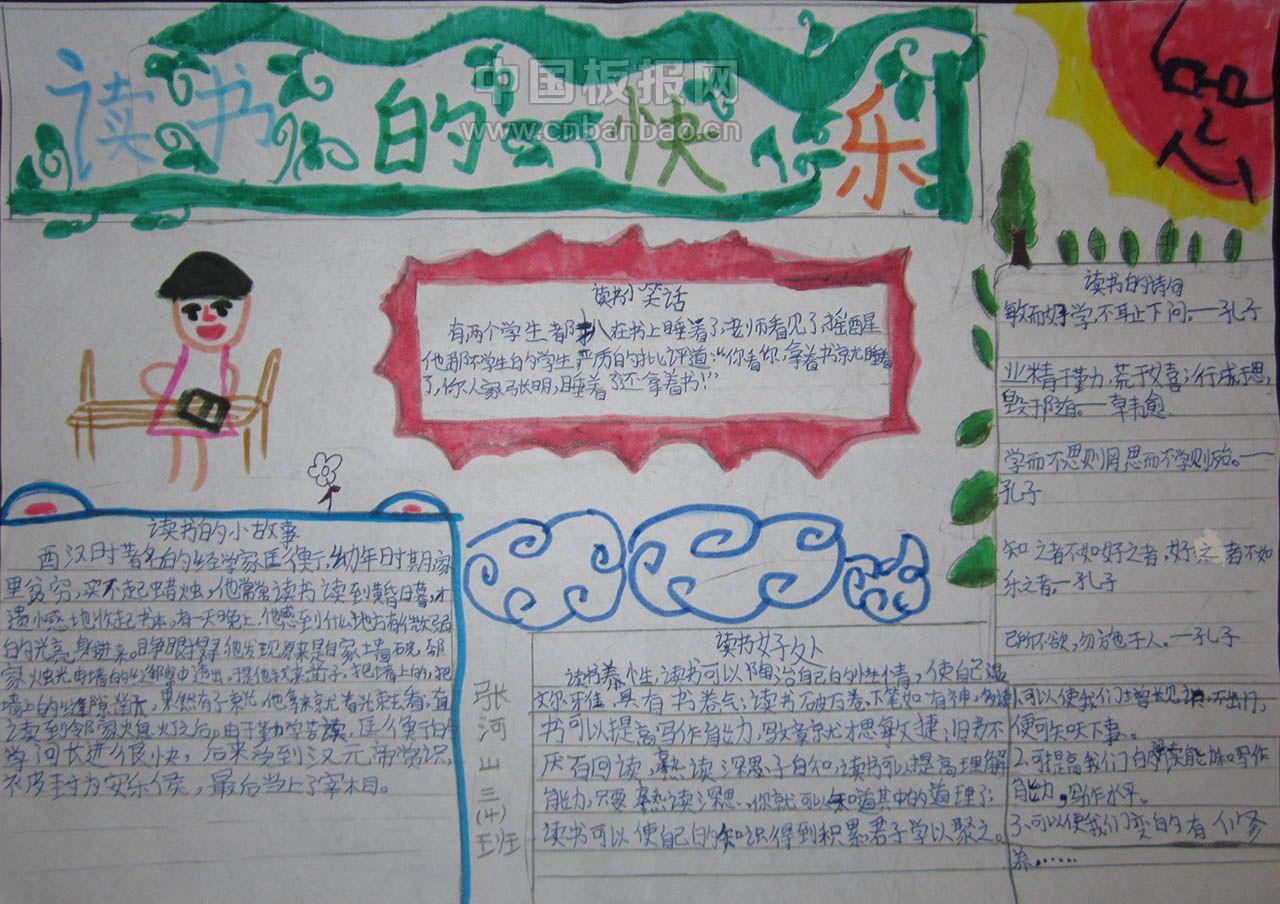 读书的快乐
中国板报网
www.cnbanbao.cn
读书小笑话
有两个学生都趴在书上睡着了,老师看见了摇醒
他那坏学生的学生严厉的批评道:“你看你,拿着书就睡着
了,你人家张明,睡着了还拿着书!”
读书的诗句
敏而好学,不耻下问。——孔子
业精于勤,荒于嬉;行成于思,
毁于随。——韩愈
学而不思则罔思而不学则殆。——
孔子
知之者不如好之者,好之者不如
乐之者——孔子
己所不欲,勿施于人。——孔子
1.可以使我们增长见识,不出门,
便可知天下事。
2.可提高我们的阅读能力,写作
能力,写作水平。
3.可以使我们变的有
养……
读书的小故事
西汉时著名的经学家匡衡,幼年时期家
里贫穷,买不起蜡烛,他常常读书读到黄昏日暮,才
遗憾地收起书本,有一天晚上,他感到什么地方有微弱
的光亮身进来。睁眼搜寻他发现原来是自家土墙破,邻
家烛光由墙的缝隙中透出,于是他找来凿子,把墙上的,把
墙上的缝隙凿大,果然有了束光,他拿来就着光束去看,直
读到邻家火息灯之后。由于勤学苦读,匡衡的
学问长进很快,后来受到汉元帝赏识,
衣皮封为安乐侯,最后当上了宰相。
张
河
山
三
(4)
班
读书好处
读书养性,读书可以陶冶自己的性情,使自己温
文尔雅,具有书卷气;读书破万卷,下笔如有神,多读
书可以提高写作能力,写文章就才思敏捷;旧书不
厌百回读,熟读深思子自知,读书可以提高理解
能力,只要熟读深思,你就可以知道其中的道理了;
读书可以使自己的知识得到积累,君子学以聚之。